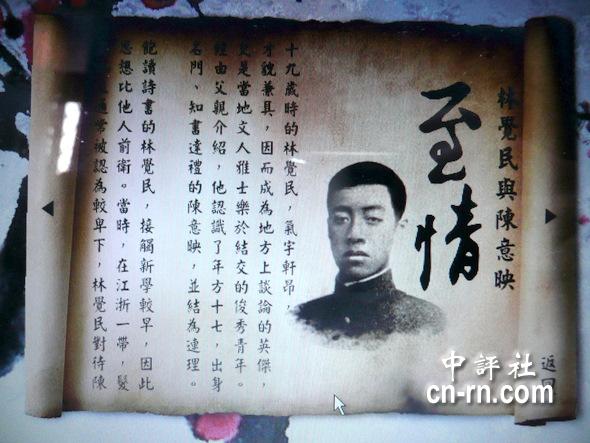 林覺民與陳意映
至情
十九歲時的林覺民，氣宇軒昂，
才貌兼具，因而成為地方上談論的英傑，
更是當地文人雅士樂於結交的俊秀青年。
經由父親介紹，他認識了年方十七，出身
名門、知書達禮的陳意映，並結為連理。
飽讀詩書的林覺民，接觸新學較早，因此
思想比他人前衛。當時，在江浙一帶，髮
通常被認為較卑下，林覺民對待陳
返回
中評社
cn-rn.com